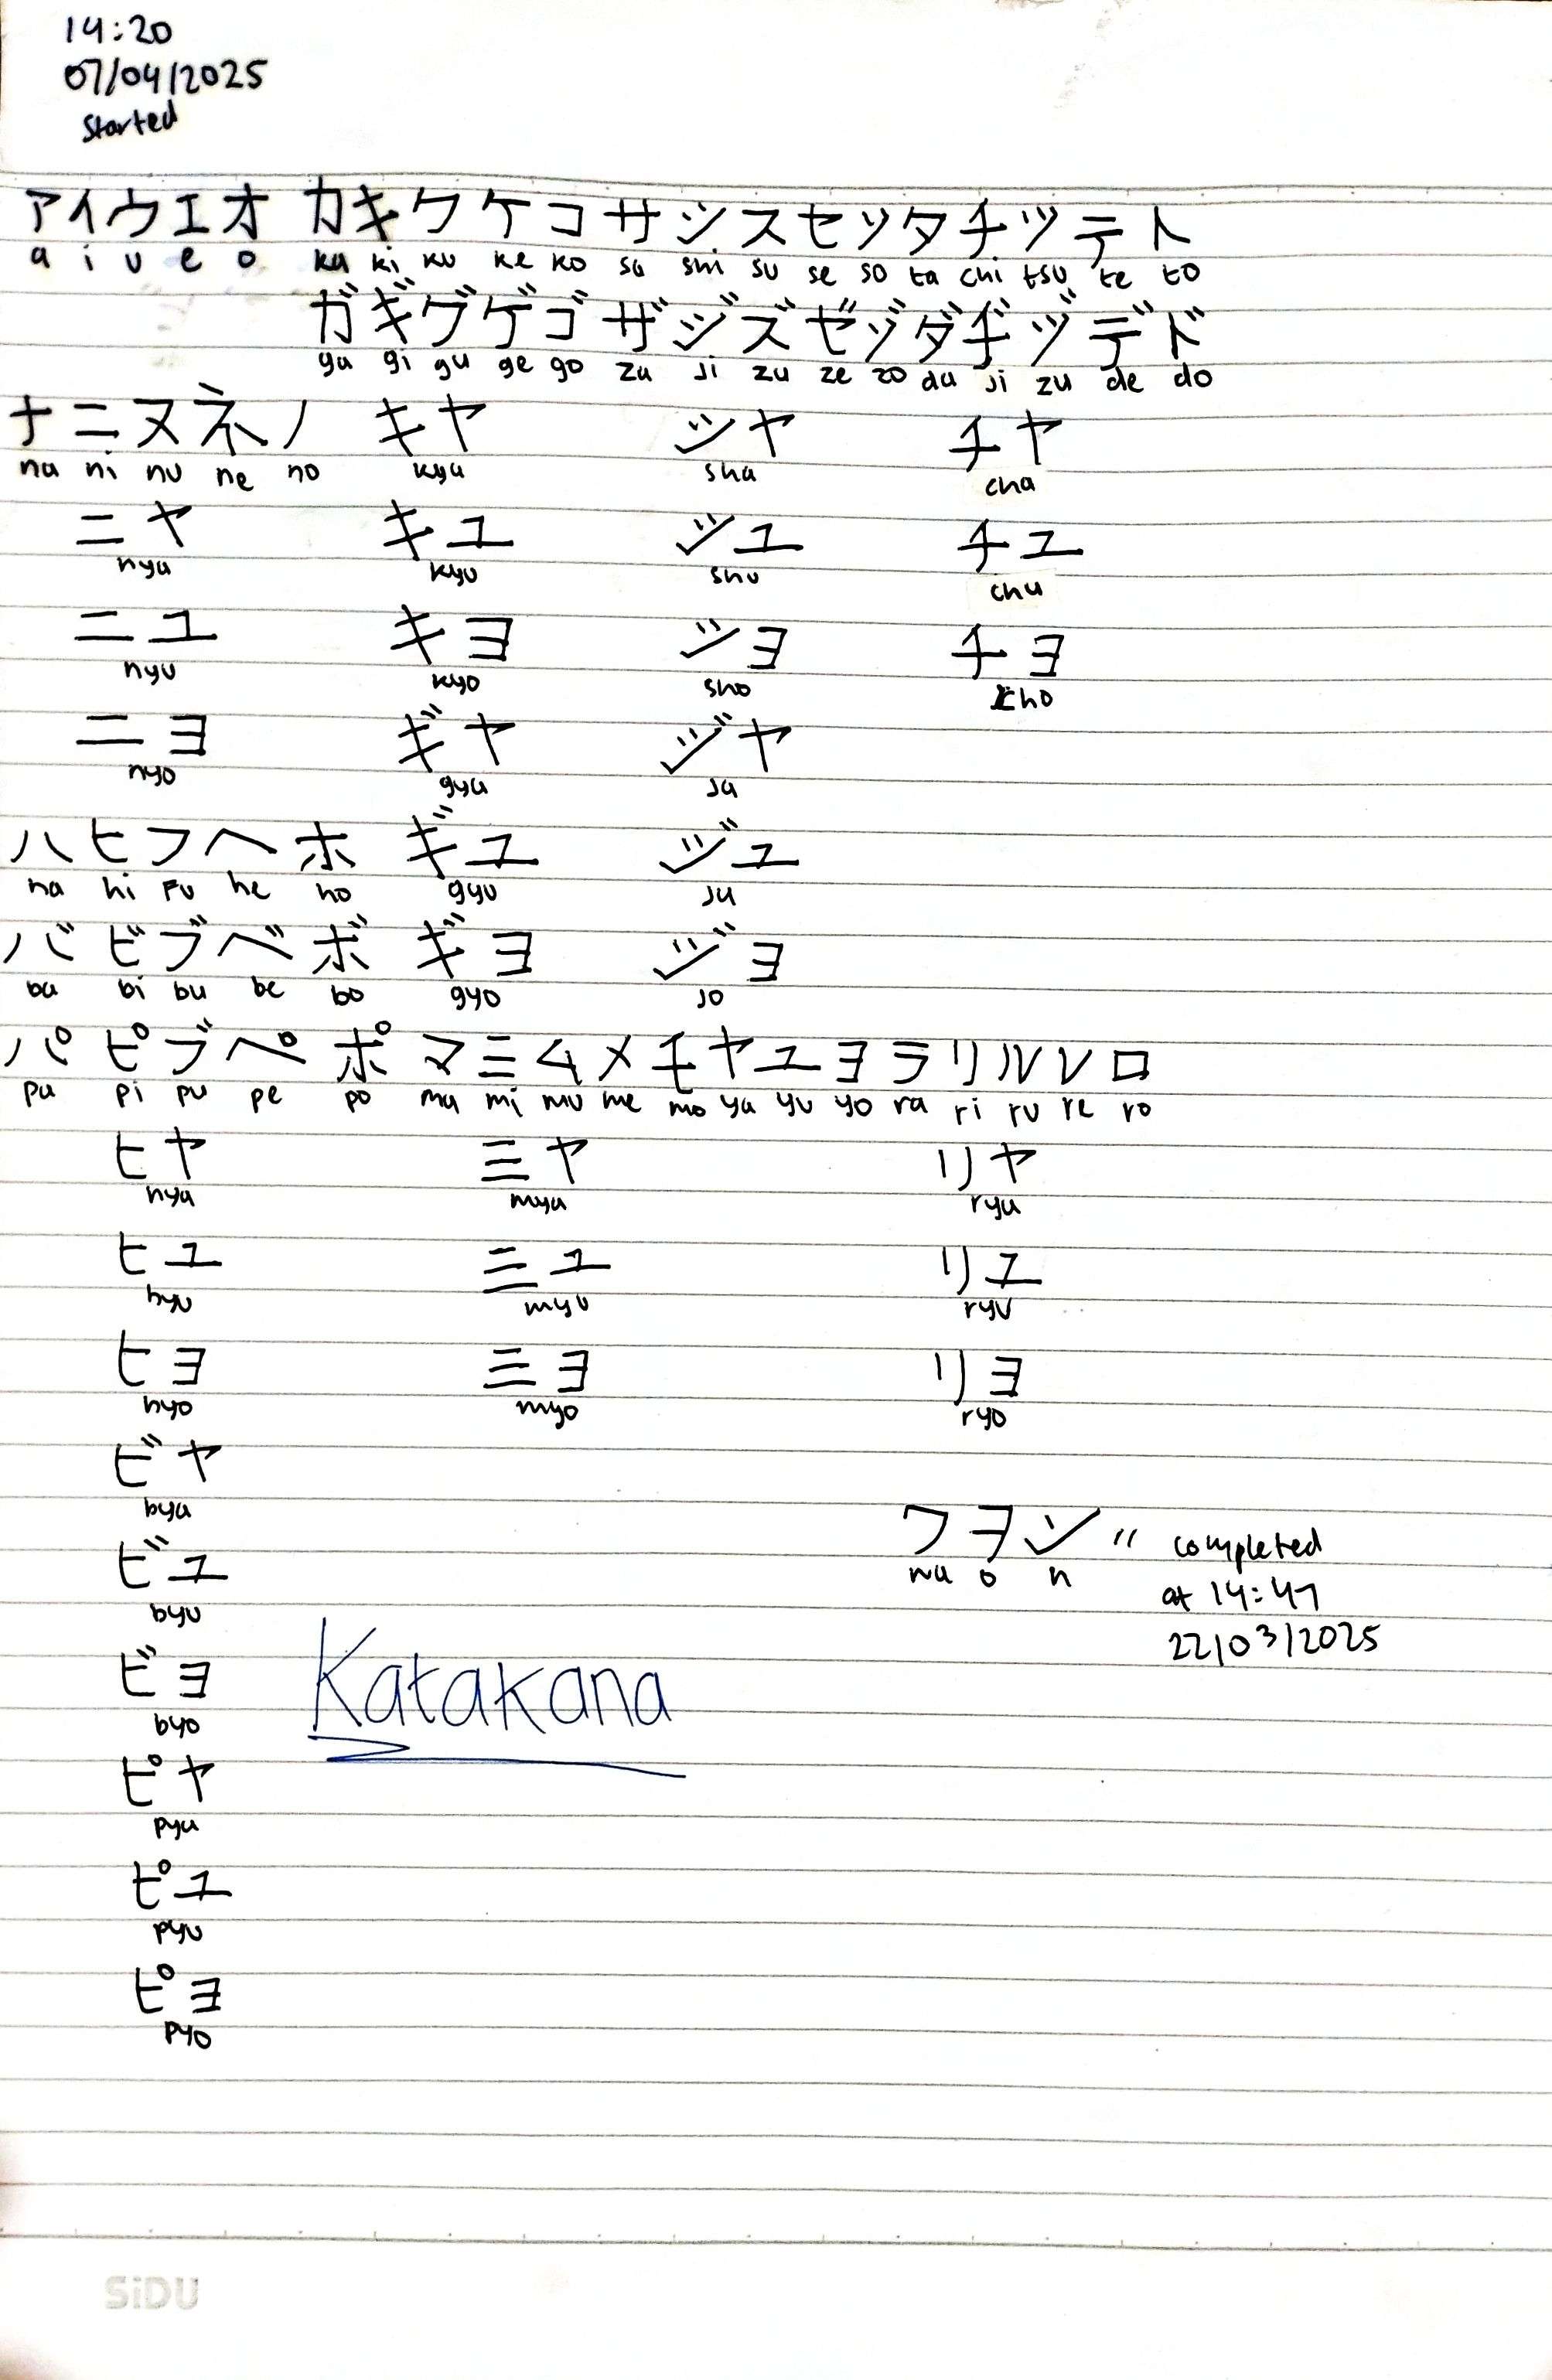 14:20
07/04/2025
started
アイウエオ カキクケコサシスセソタチツテト
a i u e o ka ki ku ke ko sa shi su se so ta chi tsu te to
ガギグゲゴザジズゼゾダヂヅデド
ga gi gu ge go za ji zu ze zo da ji zu de do
ナニヌネノ キヤ シヤ チヤ
na ni nu ne no kya sha cha
ニヤ キユ シユ チユ
nya kyu shu chu
ニユ キヨ シヨ チヨ
nyu kyo sho cho
ニヨ ギヤ ジヤ
nyo gya ja
ハヒフヘホ ギユ ジユ
ha hi fu he ho gyu ju
バビブベボ ギヨ ジヨ
ba bi bu be bo gyo jo
パピブペポマミムメモヤユヨラリルレロ
pa pi pu pe po ma mi mu me mo ya yu yo ra ri ru re ro
ヒヤ ミヤ リヤ
hya mya rya
ヒユ ミユ リユ
hyu myu ryu
ヒヨ ミヨ リヨ
hyo myo ryo
ビヤ
bya
ワヲン " completed
wa o n at 14:47
22/03/2025
ビユ
byu
ビヨ
byo
Katakana
ピヤ
pya
ピユ
pyu
ピヨ
pyo
SiDU